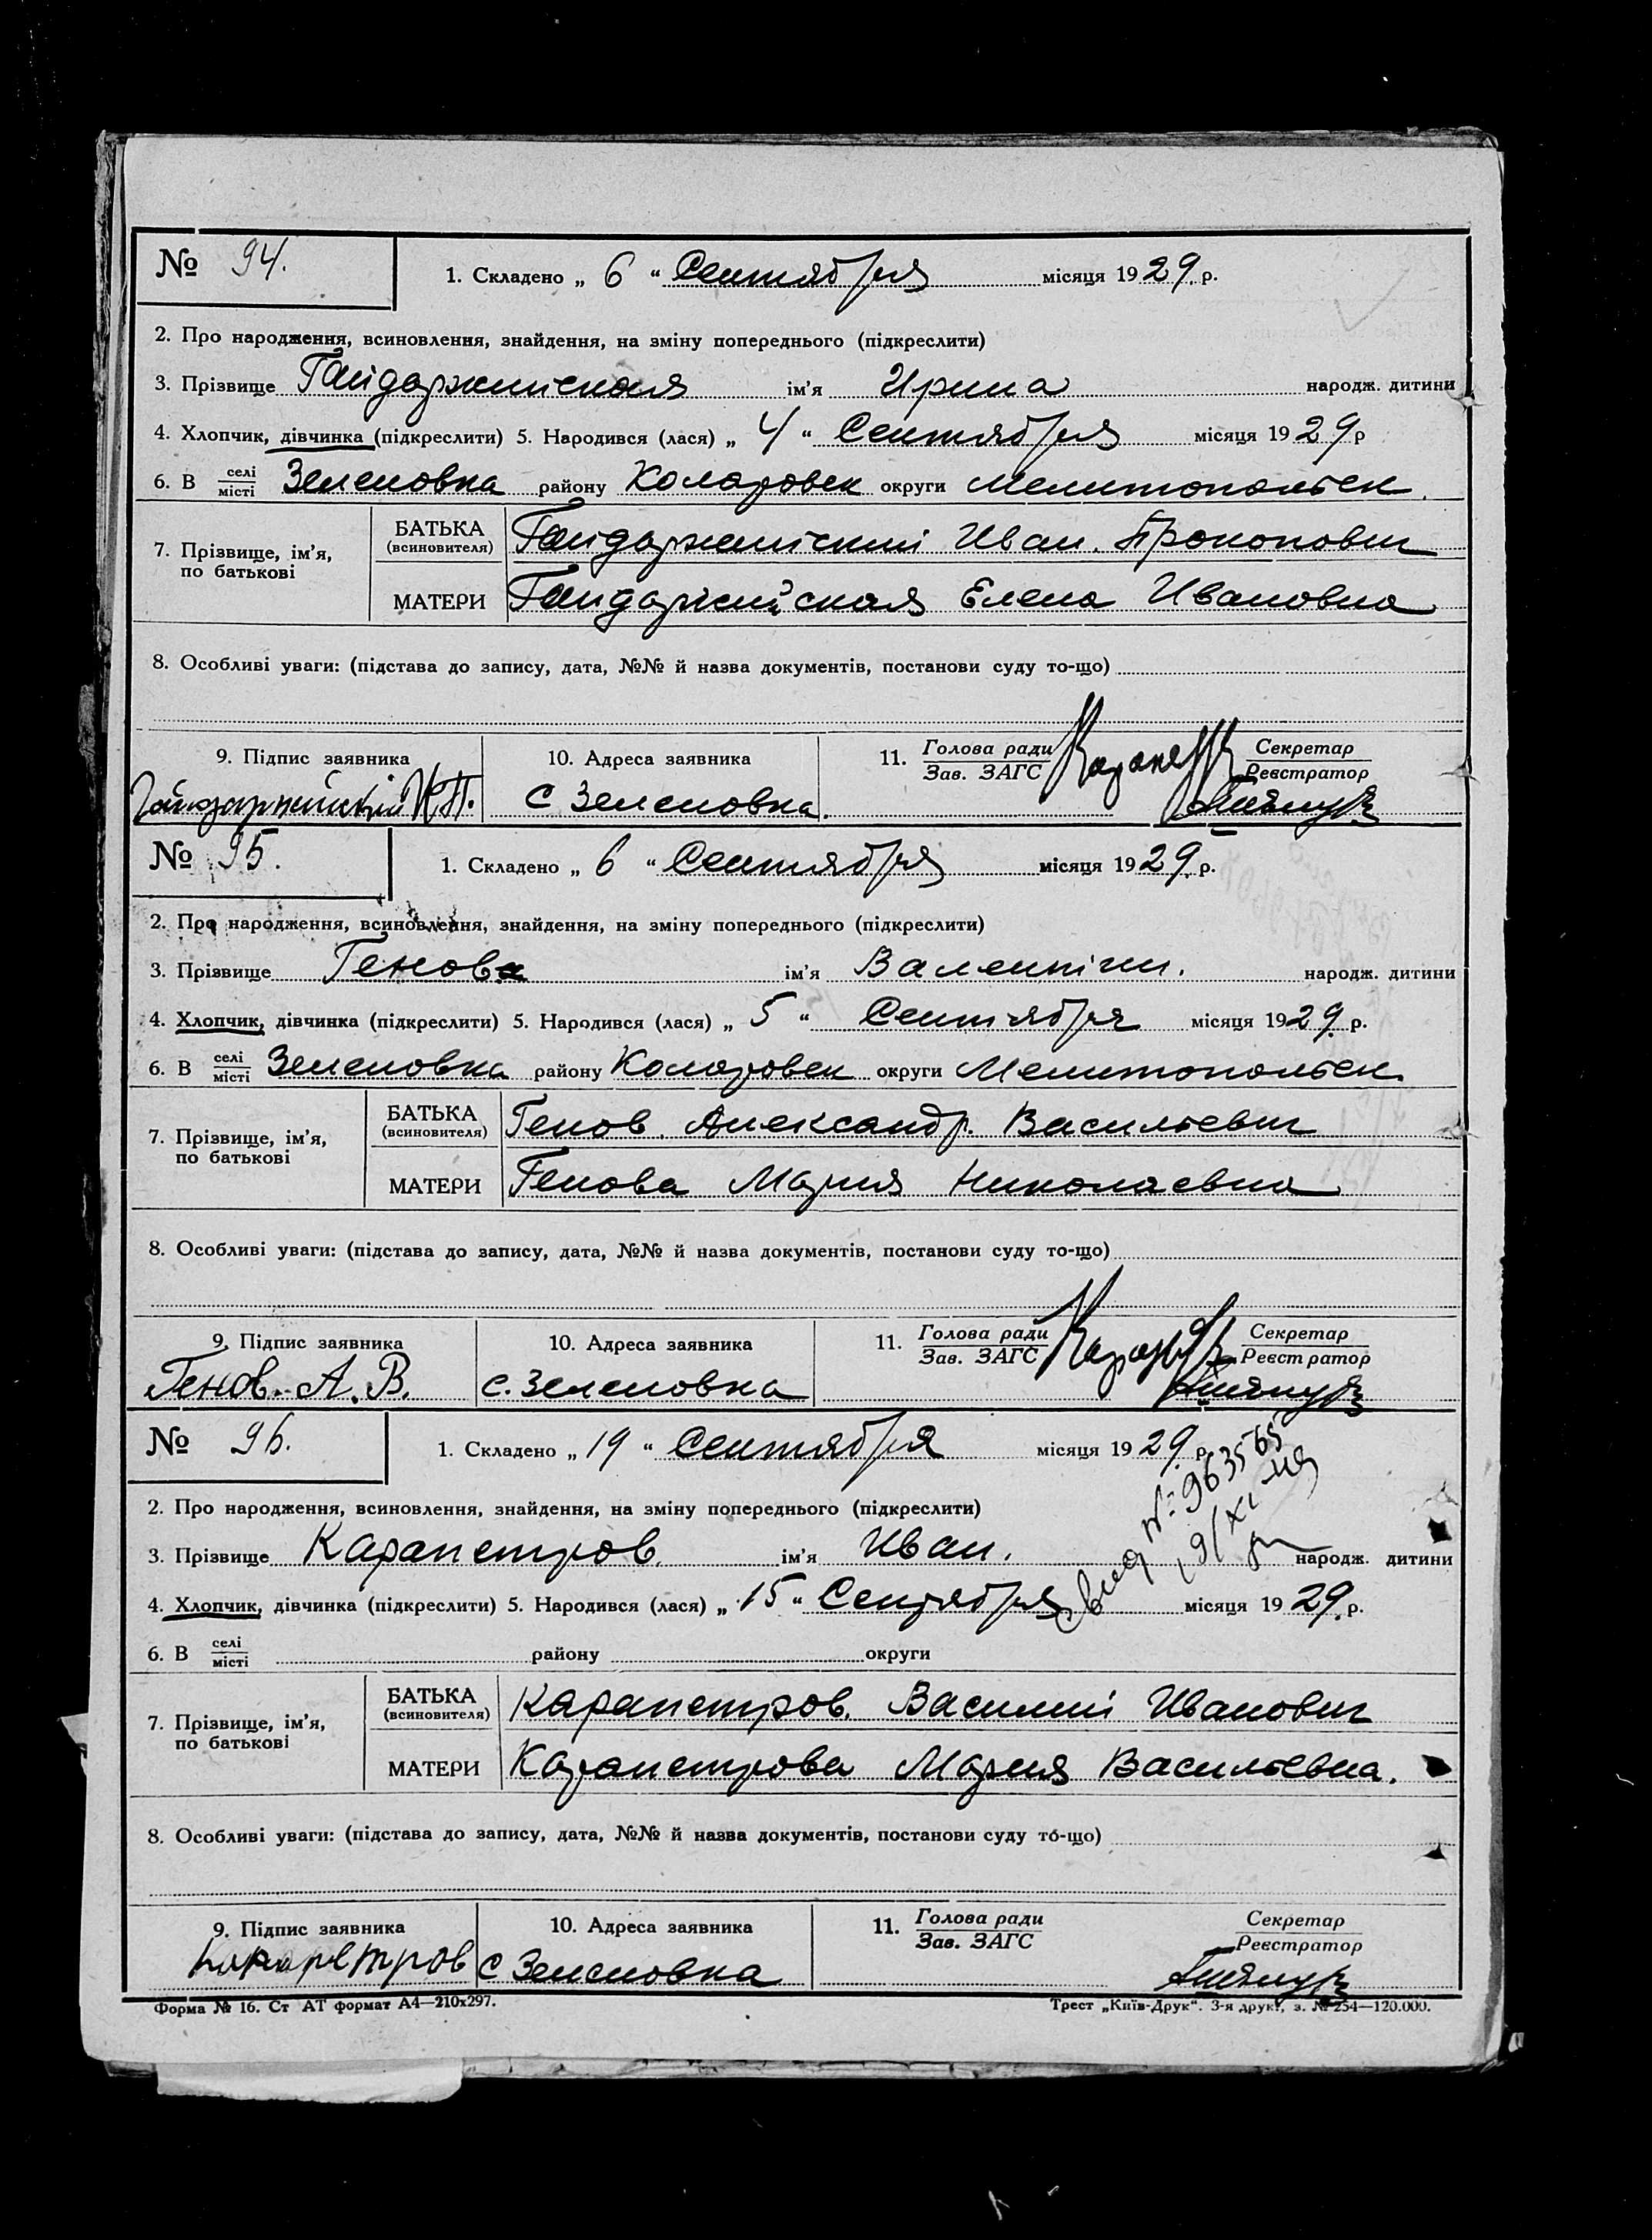 № 94. 1. Складено „ 6 “ Сентября місяця 1929. р.
2. Про народження, всиновлення, знайдення, на зміну попереднього (підкреслити)
3. Прізвище Гайдаржийская ім’я Ирина народж. дитини
4. Хлопчик, дівчинка (підкреслити) 5. Народився (лася) „ 4 “ Сентября місяця 1929 р
6. В селі/місті Зеленовка району Коларовск округи Мелитопольск.
7. Прізвище, ім’я, по батькові
БАТЬКА (всиновителя) Гайдаржийский Иван. Прокопович
МАТЕРИ Гайдаржийская Елена Ивановна
8. Особливі уваги: (підстава до запису, дата, №№ й назва документів, постанови суду то-що)
9. Підпис заявника 10. Адреса заявника 11. Голова ради/Зав. ЗАГС Секретар/Реєстратор
Гайдаржийский И.П. с Зеленовка.
№ 95. 1. Складено „ 6 “ Сентября місяця 1929. р.
2. Про народження, всиновлення, знайдення, на зміну попереднього (підкреслити)
3. Прізвище Генов ім’я Валентин. народж. дитини
4. Хлопчик, дівчинка (підкреслити) 5. Народився (лася) „ 5 “ Сентября місяця 1929. р.
6. В селі/місті Зеленовка району Коларовск округи Мелитопольск.
7. Прізвище, ім’я, по батькові
БАТЬКА (всиновителя) Генов. Александр. Васильевич
МАТЕРИ Генова Мария Николаевна
8. Особливі уваги: (підстава до запису, дата, №№ й назва документів, постанови суду то-що)
9. Підпис заявника 10. Адреса заявника 11. Голова ради/Зав. ЗАГС Секретар/Реєстратор
Генов. А. В. с. Зеленовка
№ 96. 1. Складено „ 19 “ Сентября місяця 1929. р.
2. Про народження, всиновлення, знайдення, на зміну попереднього (підкреслити)
Свид № 963565
3. Прізвище Карапетров. ім’я Иван. народж. дитини
4. Хлопчик, дівчинка (підкреслити) 5. Народився (лася) „ 15 “ Сентября місяця 1929. р.
6. В селі/місті району округи
7. Прізвище, ім’я, по батькові
БАТЬКА (всиновителя) Карапетров. Василий Иванович
МАТЕРИ Карапетрова Мария Васильевна.
8. Особливі уваги: (підстава до запису, дата, №№ й назва документів, постанови суду то-що)
9. Підпис заявника 10. Адреса заявника 11. Голова ради/Зав. ЗАГС Секретар/Реєстратор
Карапетров с Зеленовка
Форма № 16. Ст АТ формат А4—210x297. Трест „Київ-Друк“. 3-я друк., з. № 254—120.000.